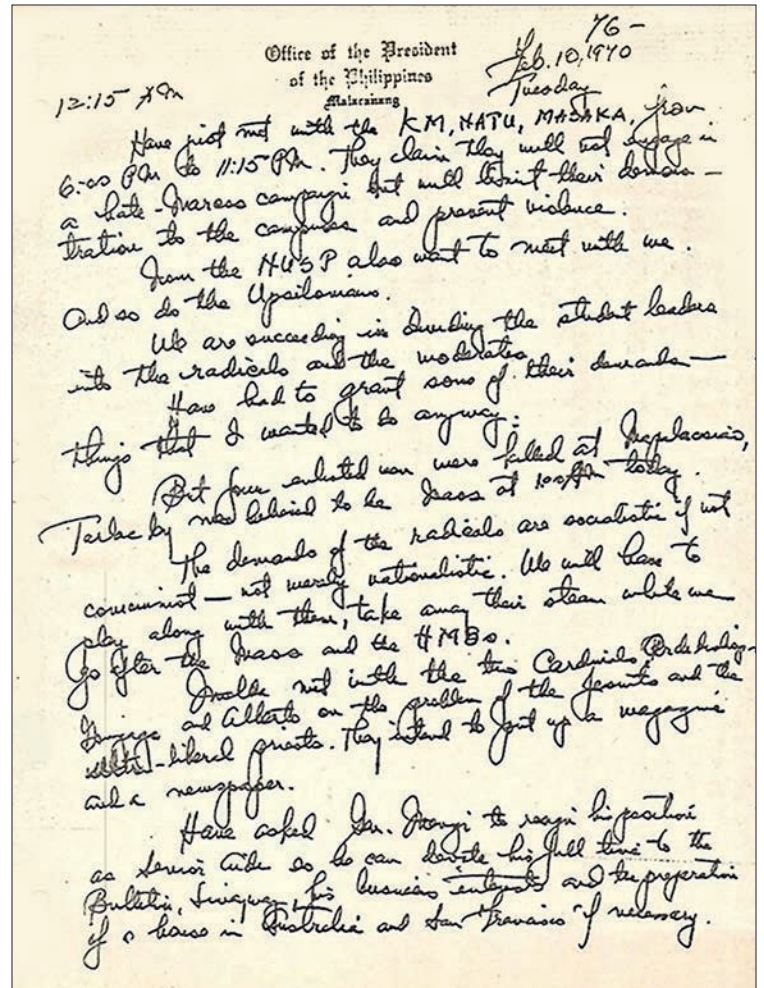 76-
Office of the President
of the Philippines
Malacañang
Feb. 10, 1970
Tuesday
12:15 PM
Have just met with the KM, NATU, MASAKA, from
6:00 PM to 11:15 PM. They claim they will not engage in
a hate-Marcos campaign but will limit their demons-
tration to the campuses and prevent violence.
from the NUSP also want to meet with me.
And so do the Upsilonians.
We are succeeding in dividing the student leaders
into the radicals and the moderates.
Have had to grant some of their demands —
things that I wanted to do anyway.
But four enlisted men were killed at Mapalacsiao,
Tarlac by men believed to be Maos at today.
The demands of the radicals are socialistic if not
communist — not merely nationalistic. We will have to
play along with them, take away their steam while we
go after the Maos and the HMBs.
Imelda met with the two Cardinals,
and Alberto on the problem of the Jesuits and the
-liberal priests. They intend to put up a magazine
and a newspaper.
Have asked Gen. Menzi to resign his position
as Senior Aide so he can devote his full time to the
Bulletin, Liwayway, his business interests and the preparation
of a house in Australia and San Francisco if necessary.